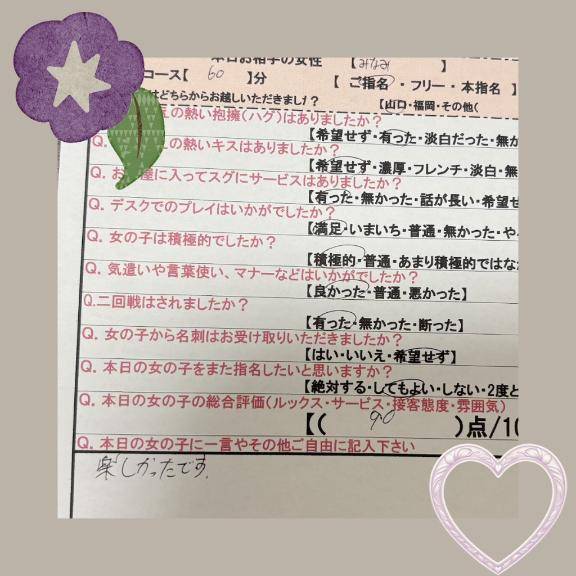 本日お相手の女性 【みなみ 】
コース【 60 】分 【 ご指名 ・ フリー ・ 本指名 】
はどちらからお越しいただきまし ？ 【山口・福岡・その他(
の熱い抱擁(ハグ)はありましたか？
【希望せず・有った・淡白だった・無か
Q. の熱いキスはありましたか？
【希望せず・濃厚・フレンチ・淡白・無
Q. お に入ってスグにサービスはありましたか？
【有った・無かった・話が長い・希望せ
Q. デスクでのプレイはいかがでしたか？
【満足・いまいち・普通・無かった・や
Q. 女の子は積極的でしたか？
【積極的・普通・あまり積極的ではな
Q. 気遣いや言葉使い、マナーなどはいかがでしたか？
【良かった・普通・悪かった】
Q.二回戦はされましたか？
【有った・無かった・断った】
Q. 女の子から名刺はお受け取りいただきましたか？
【はい・いいえ・希望せず】
Q. 本日の女の子をまた指名したいと思いますか？
【絶対する・してもよい・しない・2度と
Q. 本日の女の子の総合評価(ルックス・サービス・接客態度・雰囲気)
【( 90 )点/10
Q. 本日の女の子に一言やその他ご自由に記入下さい
楽しかったです。